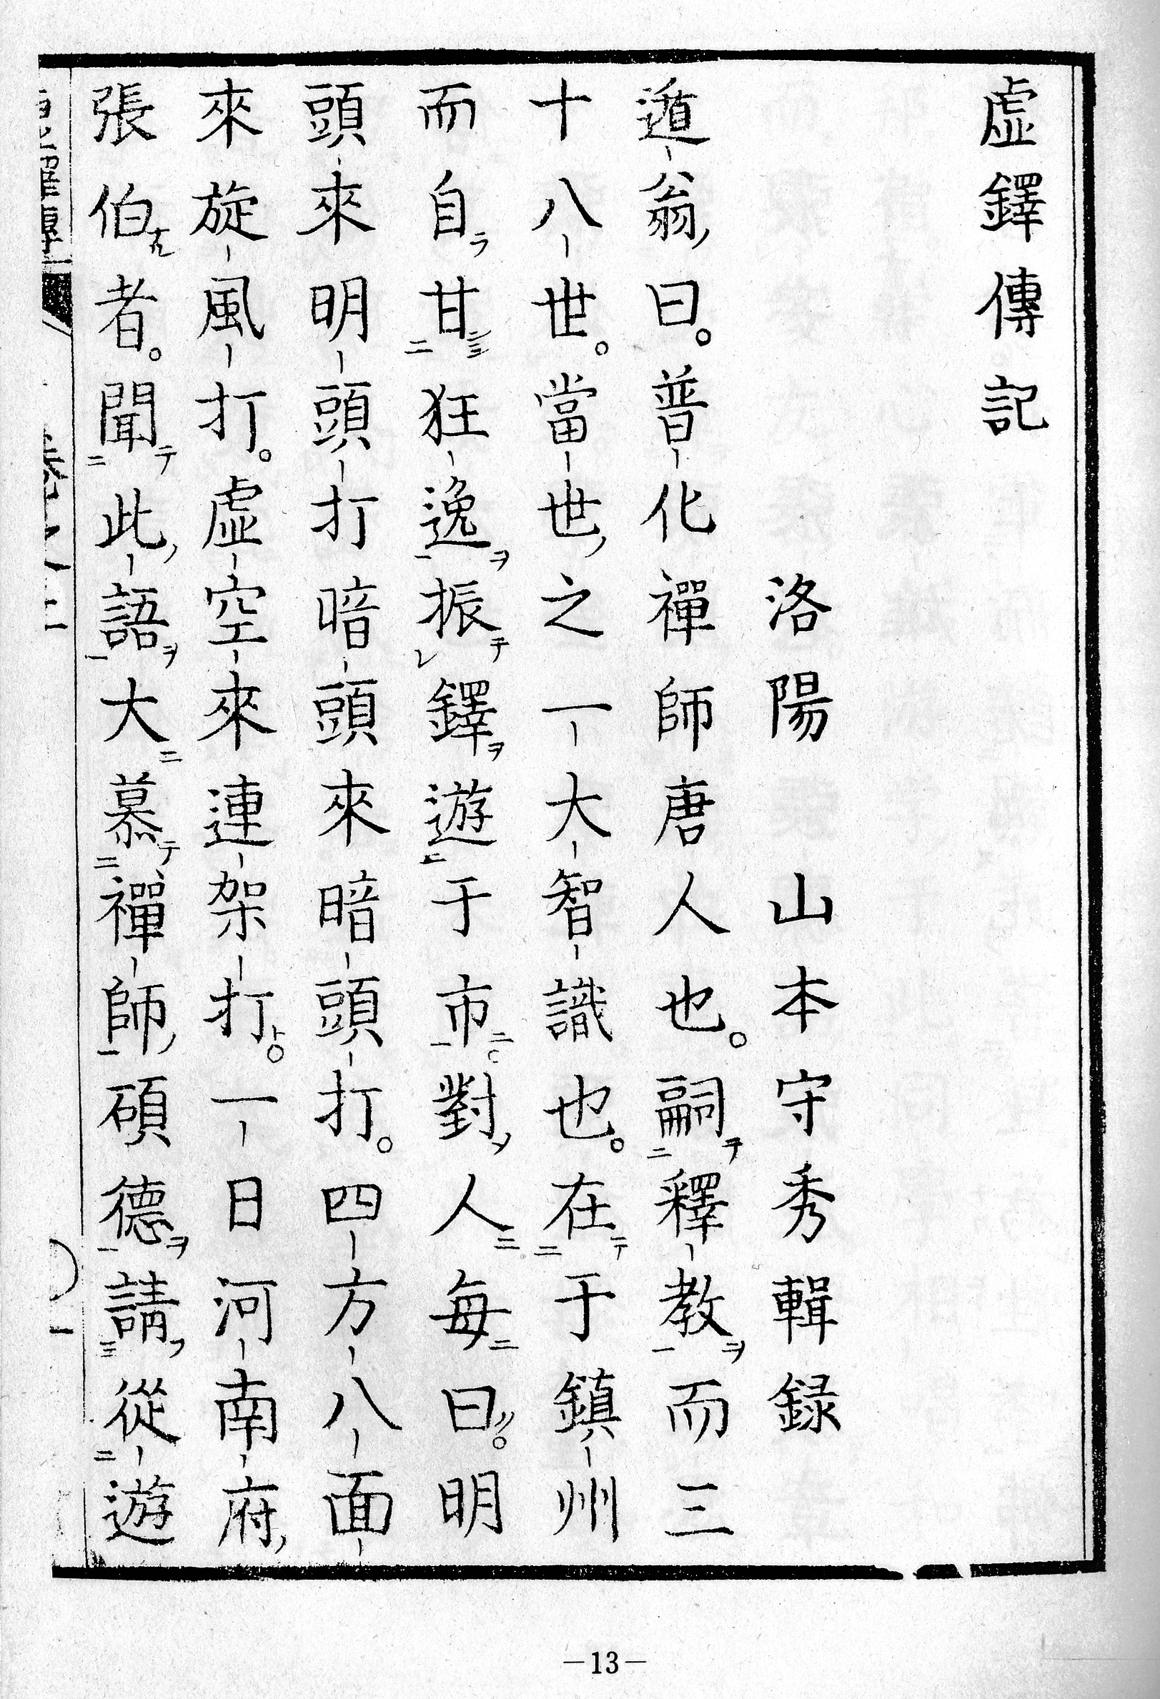 虛鐸傳記
洛陽 山本守秀輯録
遁翁曰。普化禪師唐人也。嗣釋教而三
十八世。當世之一大智識也。在于鎮州
而自甘狂逸振鐸遊于市對人每曰。明
頭來明頭打暗頭來暗頭打。四方八面
來旋風打。虛空來連架打。一日河南府
張伯者。聞此語大慕禪師碩德請從遊
—13—